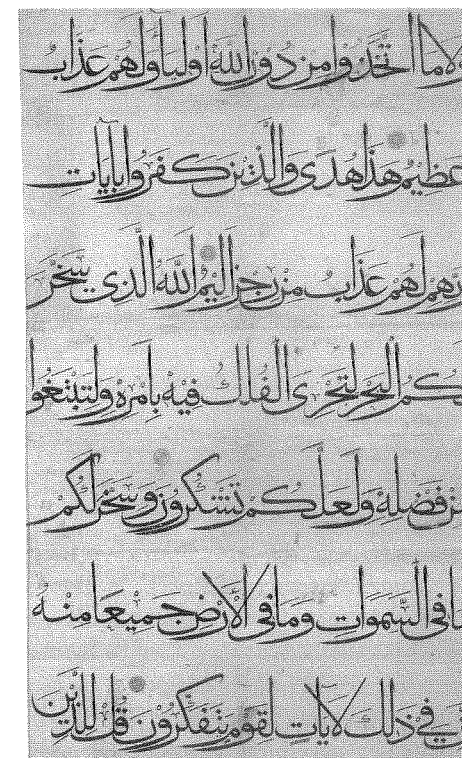 ولا ما اتخذوا من دون الله اولياء ولهم عذاب
عظيم هذا هدى والذين كفروا بايات
ربهم لهم عذاب من رجز اليم الله الذي سخر
لكم البحر لتجرى الفلك فيه بامره ولتبتغوا
من فضله ولعلكم تشكرون وسخر لكم
ما في السموات وما في الارض جميعا منه
ان في ذلك لايات لقوم يتفكرون قل للذين